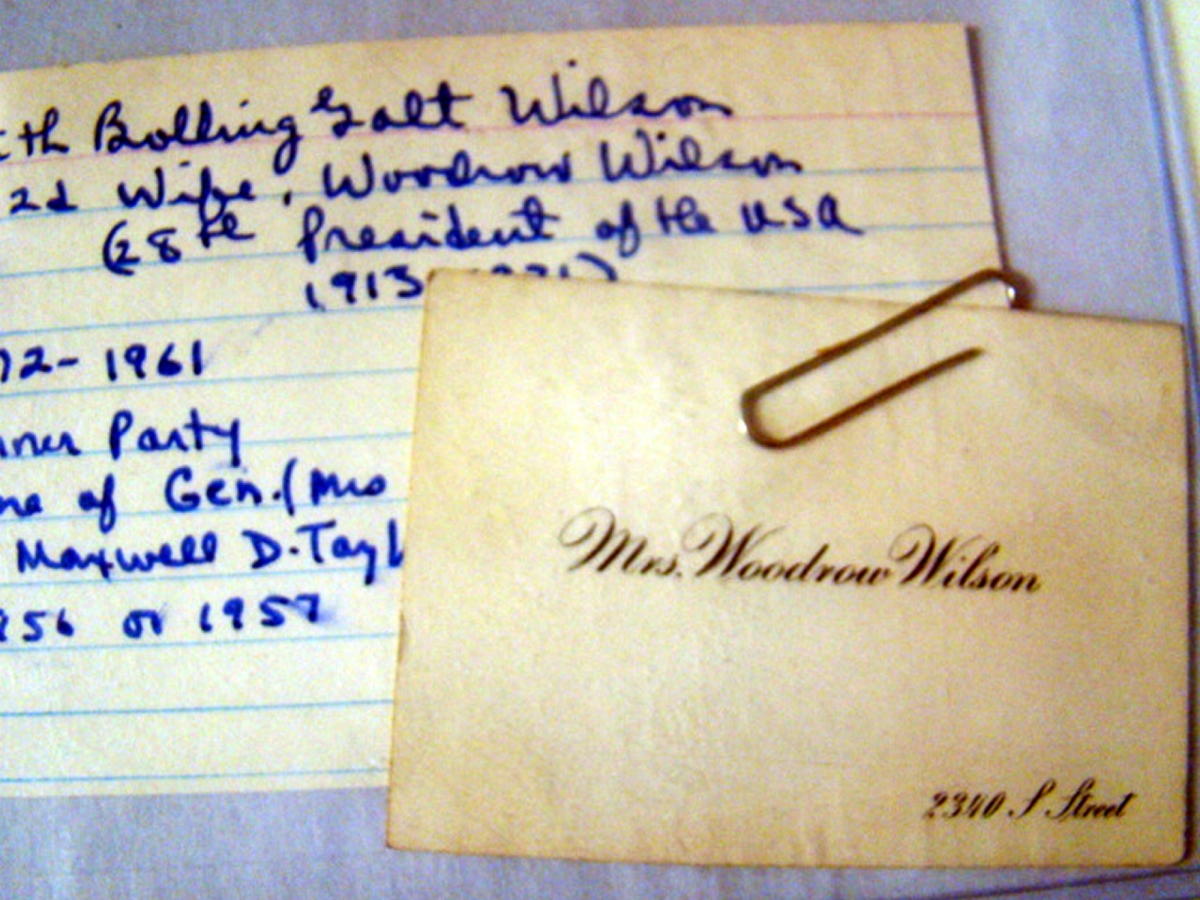 th Bolling Galt Wilson
2d Wife, Woodrow Wilson
(28th President of the USA
1913-1921)
72-1961
nner Party
me of Gen. (Mrs
Maxwell D. Tayl
956 or 1957
Mrs. Woodrow Wilson
2340 S Street